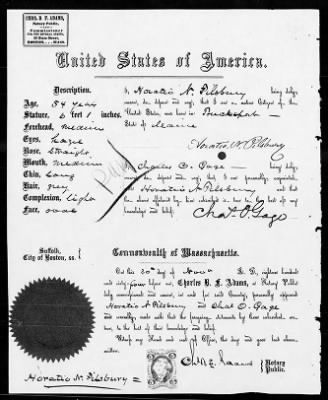 CHAS. B. F. ADAMS,
Notary Public,
Commissioner
BOSTON, MASS.
United States of America.
Description.
Age, 54 years
Stature, 6 feet 1 inches.
Forehead, medium
Eyes, hazel
Nose, straight
Mouth, medium
Chin, long
Hair, grey
Complexion, light
Face, oval
I, Horatio N. Pilsbury being duly
sworn, do depose and say, that I am a native Citizen of the
United States, was born in Bucksport
State of Maine
Horatio N. Pilsbury
I, Charles O. Gage being duly
sworn, do depose and say, that I am personally acquainted
Horatio N Pilsbury and that
the above affidavit by him subscribed is true, to the best of my
knowledge and belief.
Chas O. Gage
Suffolk,
City of Boston, ss.
Commonwealth of Massachusetts.
On this 30th day of Nov A. D. eighteen hundred
and sixty before me, Charles B. F. Adams, a Notary Public
duly commissioned and sworn, in and for said County, personally appeared
Horatio N Pilsbury and Chas O. Gage and
severally made oath that the foregoing statements by them subscribed are
true, to the best of their knowledge and belief.
Witness my Hand and Seal of Office, the day and year last above
written.
Notary
Public.
Horatio N. Pilsbury